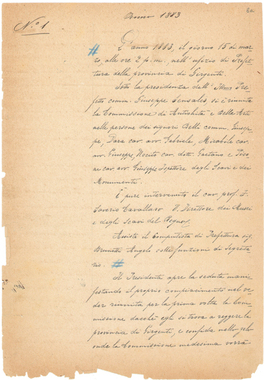 Anno 1883
Nº 1
L'anno 1883, il giorno 15 di mar
zo, alle ore 2 p.m. nell'ufficio di Prefet
tura della provincia di Girgenti.
Sotto la presidenza dell'Ill.mo Prefetto
comm. Giuseppe Sensales, si è riunita
la Commissione di Antichità e Belle Arti
nelle persone dei signori
Picone cav. avv. Giuseppe Ispettore degli Scavi e dei
Monumenti.
È pure intervenuto il cav. prof. F.
Saverio Cavallaro Direttore dei Musei
e degli Scavi del Regno.
Assiste il Computista di Prefettura
Angelo sotto funzioni di Segreta
rio.
Il Presidente apre la seduta mani
festando il proprio compiacimento nel ve
der riunita per la prima volta la Com
missione dacchè egli si trova a reggere la
provincia di Girgenti, e confida nello zelo
onde la Commissione medesima vorrà